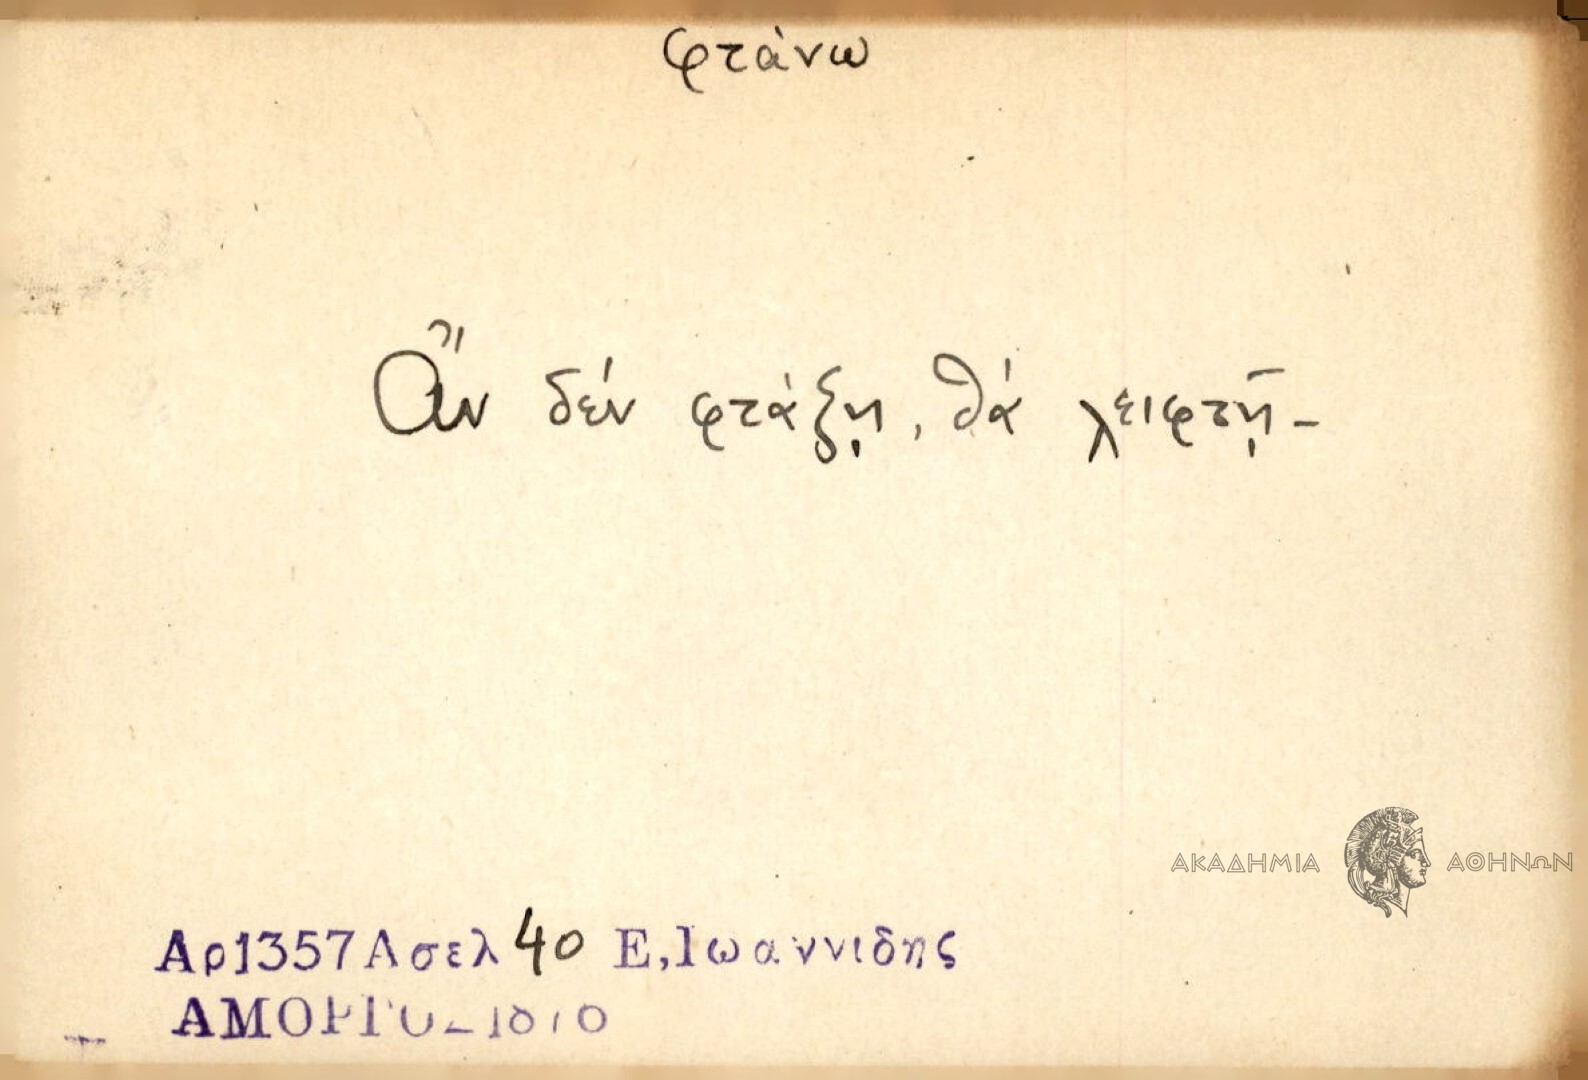 φτάνω
Ἂν δέν φτάξῃ, θά λειφτῇ-
ΑΚΑΔΗΜΙΑ ΑΘΗΝΩΝ
Αρ1357Α σελ 40 Ε,Ιωαννιδης
ΑΜΟΡΓΟΣ